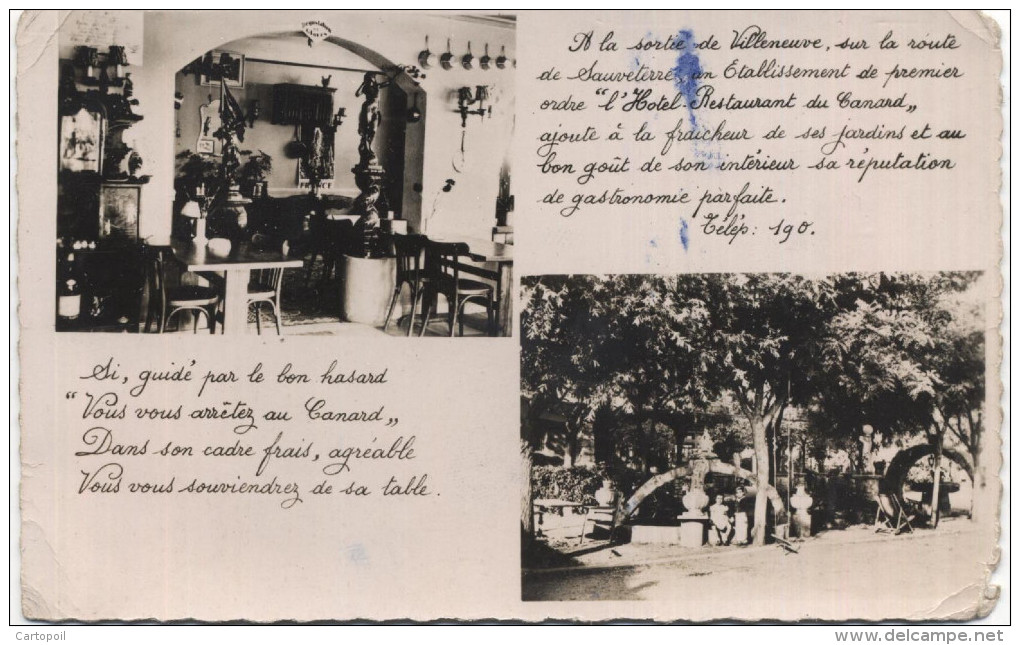 A la sortie de Villeneuve, sur la route
de Sauveterre, un Etablissement de premier
ordre "l'Hotel-Restaurant du Canard„
ajoute à la fraicheur de ses jardins et au
bon goût de son intérieur sa réputation
de gastronomie parfaite.
Télép: 190.
Si, guidé par le bon hasard
"Vous vous arrêtez au Canard„
Dans son cadre frais, agréable
Vous vous souviendrez de sa table.
FRANCE
Cartopoil
www.delcampe.net